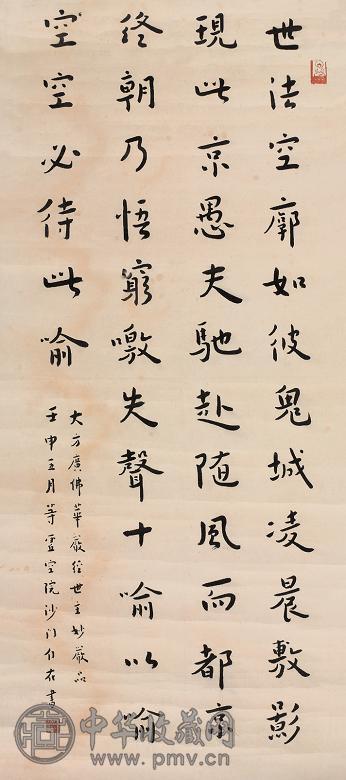 世法空廓如彼鬼城凌晨敷影
現此京愚夫馳赴随風而都亦
終朝乃悟窮噭失聲十喻以喻
空空必待此喻
大方廣佛華嚴經世主妙嚴品
壬申三月等虛空院沙门一書
中华收藏网
www.pmv.cn